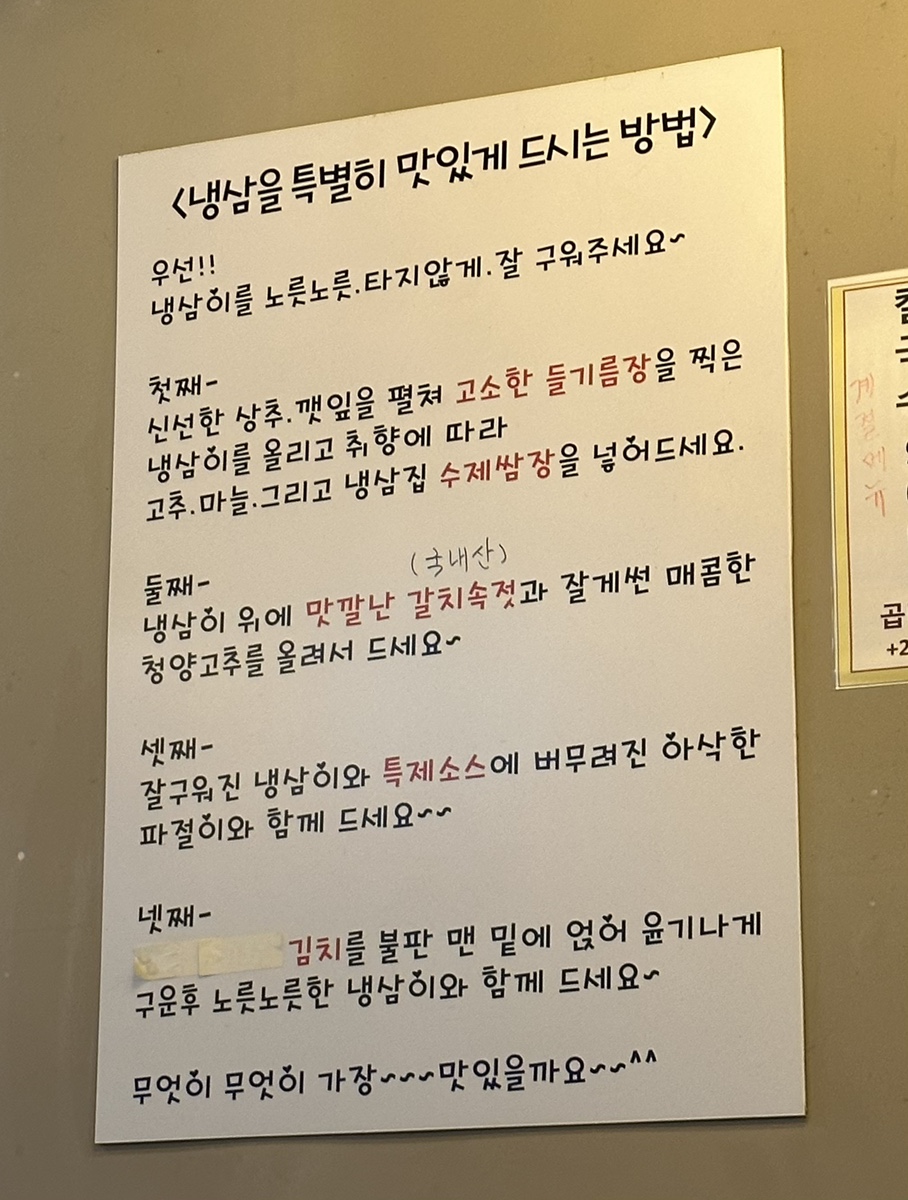 <냉삼을 특별히 맛있게 드시는 방법>
우선!!
냉삼이를 노릇노릇.타지않게.잘 구워주세요~
첫째-
신선한 상추.깻잎을 펼쳐 고소한 들기름장을 찍은
냉삼이를 올리고 취향에 따라
고추.마늘.그리고 냉삼집 수제쌈장을 넣어드세요.
둘째-
(국내산)
냉삼이 위에 맛깔난 갈치속젓과 잘게썬 매콤한
청양고추를 올려서 드세요~
셋째-
잘구워진 냉삼이와 특제소스에 버무려진 아삭한
파절이와 함께 드세요~~
넷째-
김치를 불판 맨 밑에 얹어 윤기나게
구운후 노릇노릇한 냉삼이와 함께 드세요~
무엇이 무엇이 가장~~~맛있을까요~~^^
곱
+2